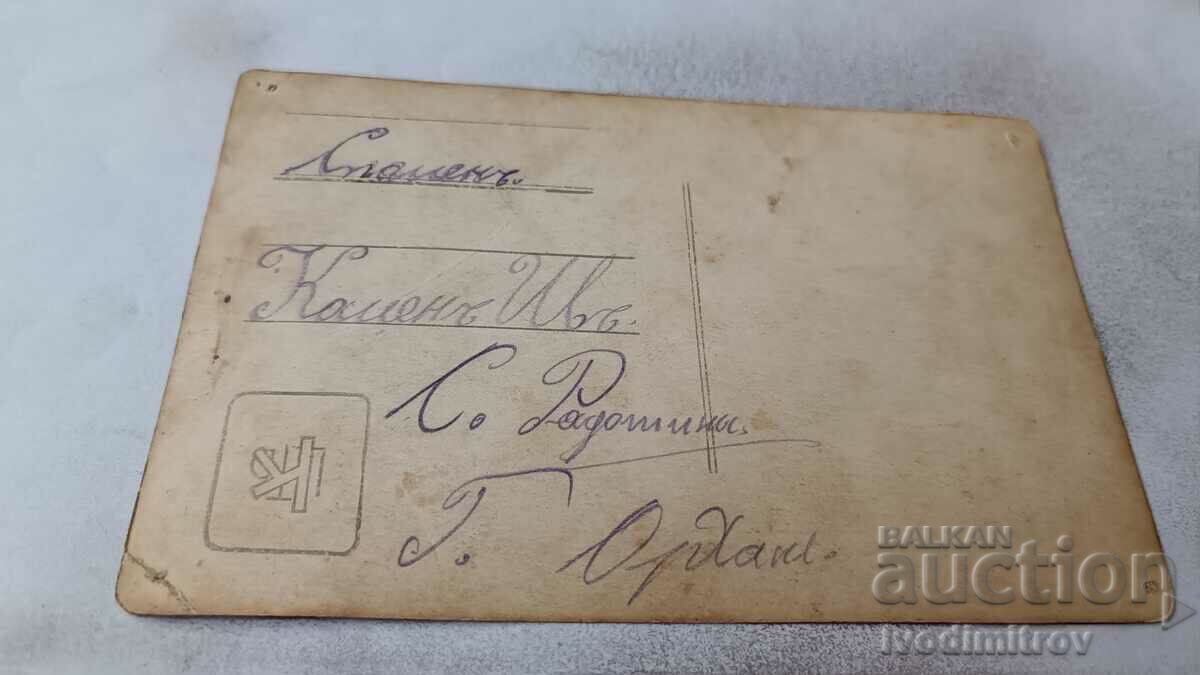 Стаменъ.
Каменъ Ивъ.
С. Радотина.
Г. Орхание.
BALKAN
auction
ivodimitrov